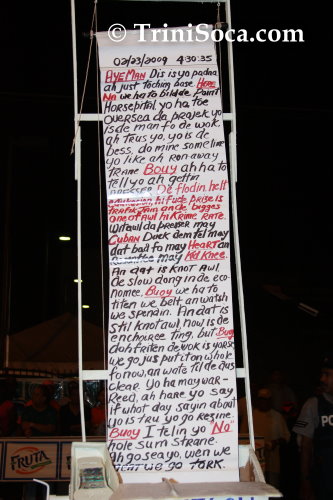 © www.TriniSoca.com
02/23/2009 4:30:35
AYE MAN Dis is yo padna
ah just tochin base HERE
NA we ha to bildde Point
Horsepitol yo ha toe
over sea da prajek yo
is de man fo de wok
ah trus yo, yo is de
bess, do mine some line
yo like ah ron away
trane BOUY ah ha to
tell yo ah gettin
PRESSER De flodin, helt
hi fude prise is
trafik Jam an de bigges
one of awl hi KRIME RATE.
Wit awl da presser may
CUBAN Duck dem tel may
dat bad fo may HEART an
may Kid Knee.
An dat is KNOT AWL
de slow dong in de eco-
nomee, Buoy we ha to
titen we belt, an watsh
we spendin. An dat is
stil knot awl, now is de
enchouree ting, but Buoy
doh friten de wok is yours
we go jus put it on whole
fo now, an wate til de dus
clear. Yo ha may war-
Reed, ah hare yo say
if what day sayin about
yo is Tru yo go resine.
Buoy I telin yo "No
hole sum strane.
Ah go sea yo, wen we
we go TORK.
FRUTA
PO